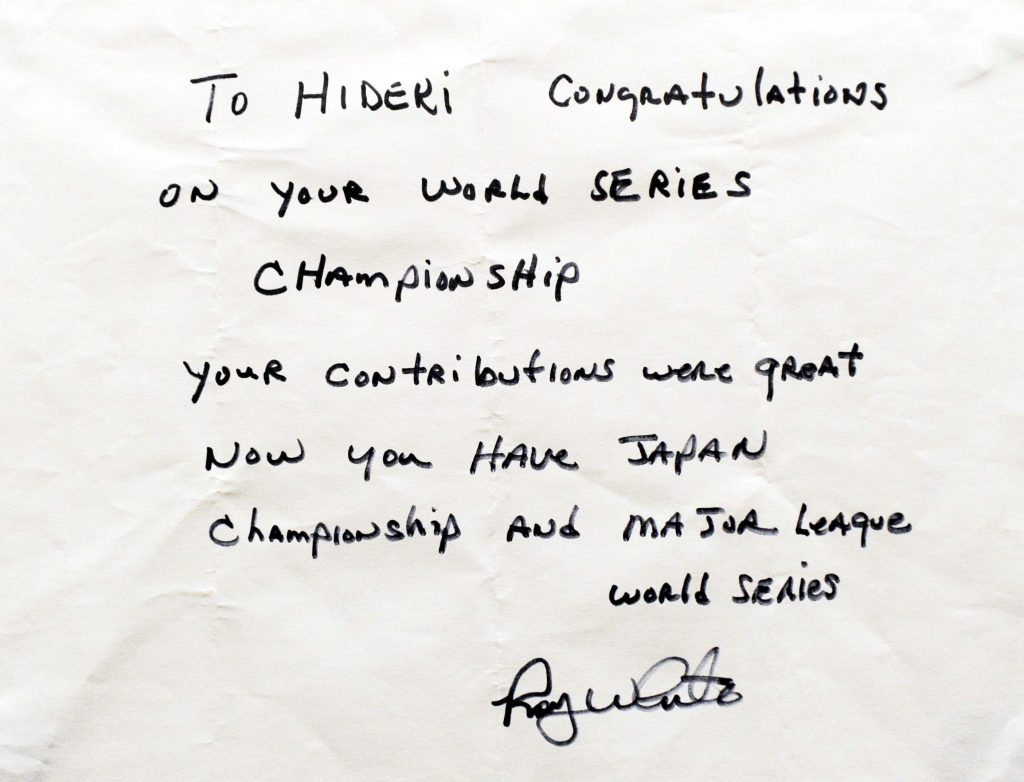 To HIDEKi Congratulations
ON YOUR WORLd SERiES
CHAmpionsHip
YOUR contributions were great
Now you HAve JAPAN
Championship ANd MAJOR LeAgue
WORLd SERies
Roy White